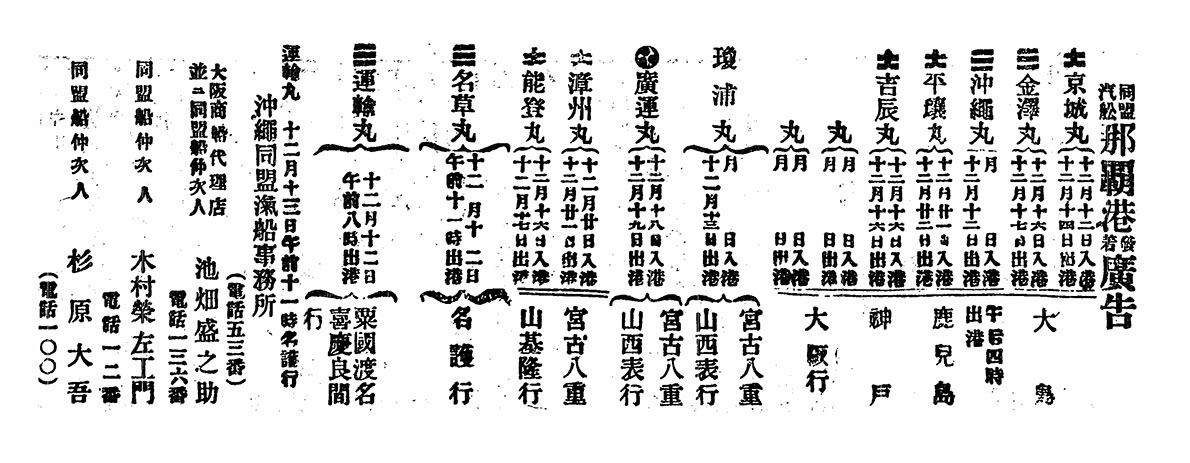 同盟汽船那覇港發着廣告
京城丸
十二月十二日入港
十二月十四日出港
金澤丸
十二月十六日入港
十二月十七日出港
沖繩丸
月 日入港
十二月十二日出港
午后四時出港
平壤丸
十二月廿一日入港
十二月廿二日出港
吉辰丸
十二月十六日入港
十二月十六日出港
丸
月 日入港
月 日出港
丸
月 日入港
月 日出港
大島
鹿兒島
神戸
大阪行
瓊浦丸
月 日入港
十二月十三日出港
宮古八重山西表行
廣運丸
十二月十八日入港
十二月十九日出港
宮古八重山西表行
漳州丸
十二月廿日入港
十二月廿一日出港
能登丸
十二月十六日入港
十二月十七日出港
宮古八重山基隆行
名草丸
十二月十二日
午前十一時出港
名護行
運輸丸
十二月十二日
午前八時出港
粟國渡名喜慶良間行
運輸丸 十二月十三日午前十一時名護行
沖繩同盟滊船事務所
(電話五三番)
大阪商船代理店
並ニ同盟船仲次人
池畑盛之助
電話一三六番
同盟船仲次人
木村榮左工門
電話一二番
同盟船仲次人
杉原大吾
(電話一〇〇)